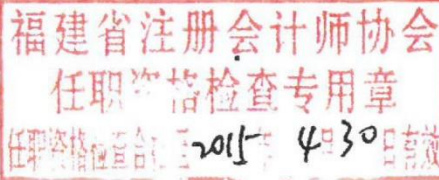 福建省注册会计师协会
任职资格检查专用章
任职资格检查合 至2015年4月30日有效